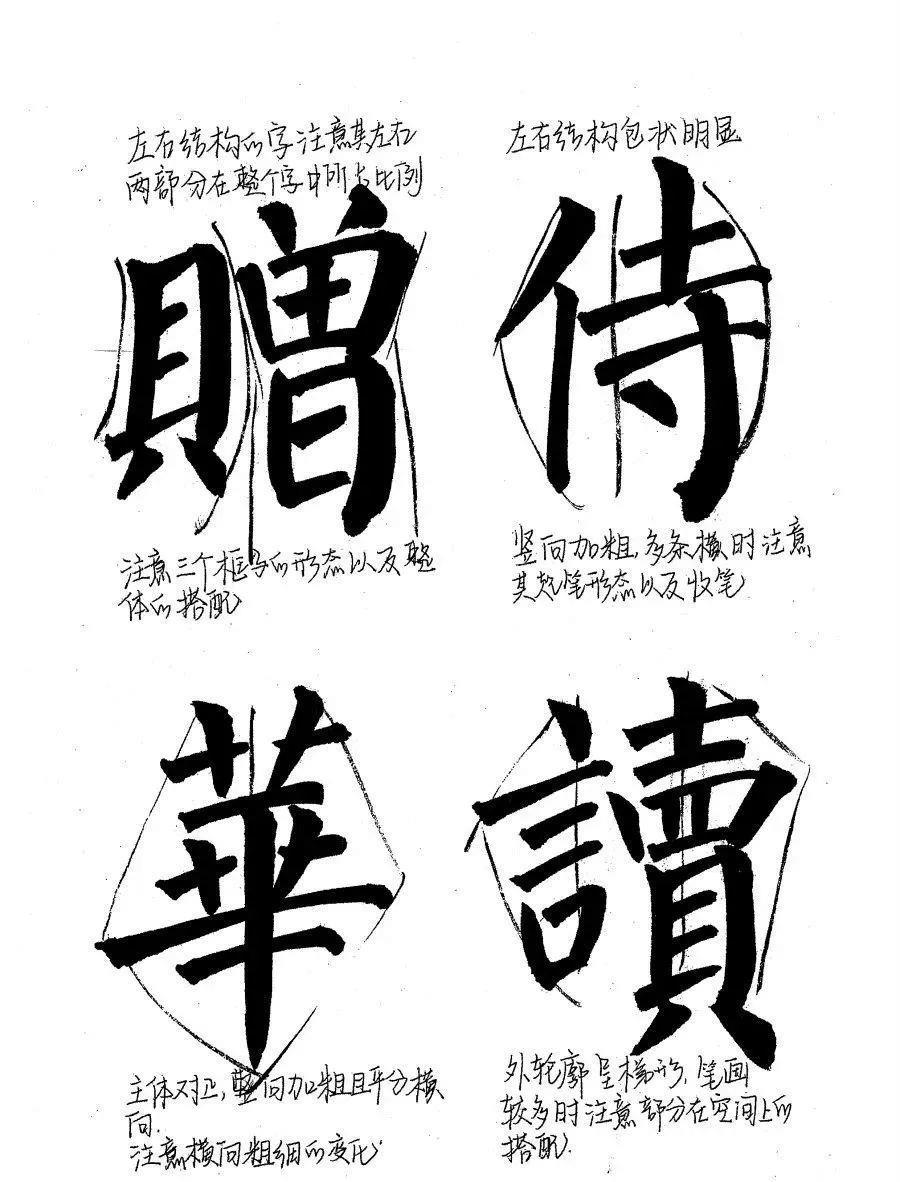 左右结构的字注意其左右
两部分在整个字中所占比例
贈
注意三个框与的形态以及整
体的搭配
左右结构包状明显
侍
竖向加粗，多条横时注意
其起笔形态以及收笔
華
主体对正，竖向加粗且平分横
向.
注意横向粗细的变化
讀
外轮廓呈梯形，笔画
较多时注意部分在空间上的
搭配.